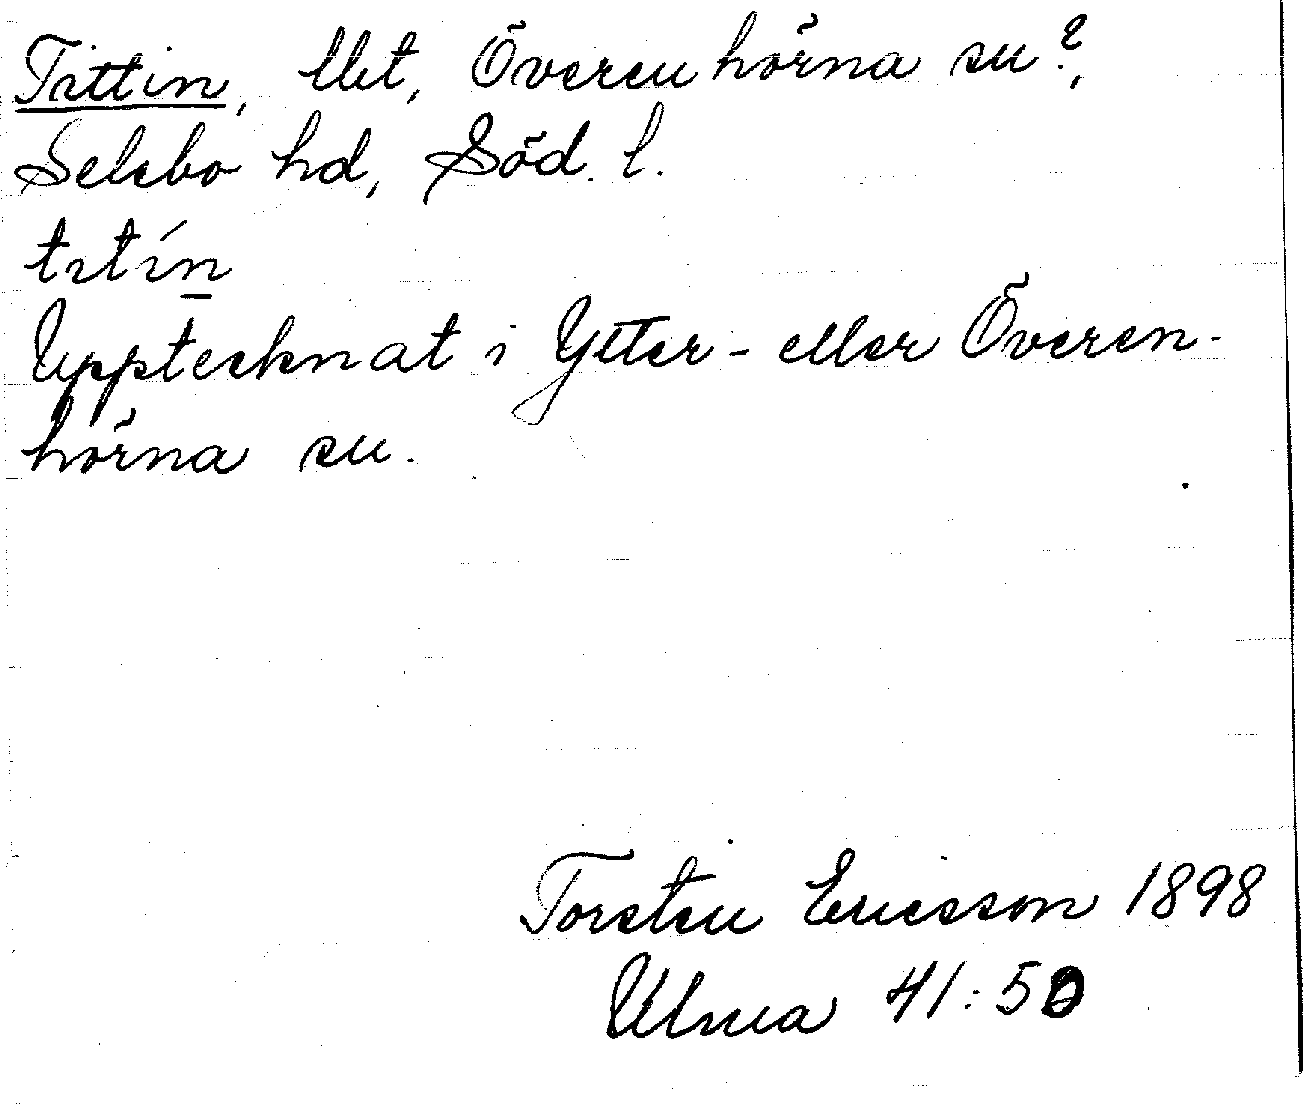 Tittin, Ust, Överenhörna sn?,
Selebo hd, Söd. l.
titín
Upptecknat i Ytter- eller Överen-
hörna sn.
Torsten Ericsson 1898
Ulma 41:50